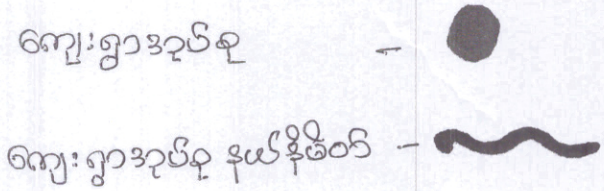 ကျေးရွာအုပ်စု -
ကျေးရွာအုပ်စု နယ်နိမိတ် -